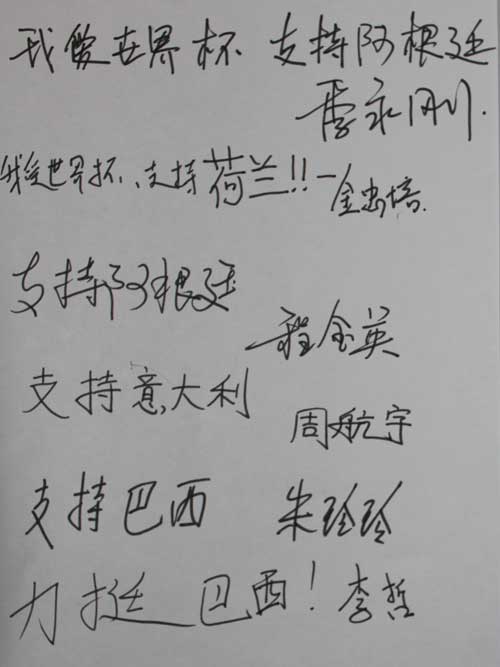 我爱世界杯 支持阿根廷
李永刚.
我爱世界杯、支持荷兰!!—金忠培.
支持阿根廷
程金英
支持意大利
周航宇
支持巴西 朱玲玲
力挺巴西! 李哲